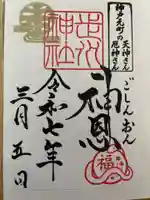 神戸元町の
天神さん
厄神さん
ごしんおん
神恩
走水
神社
福
令和七年
三月五日